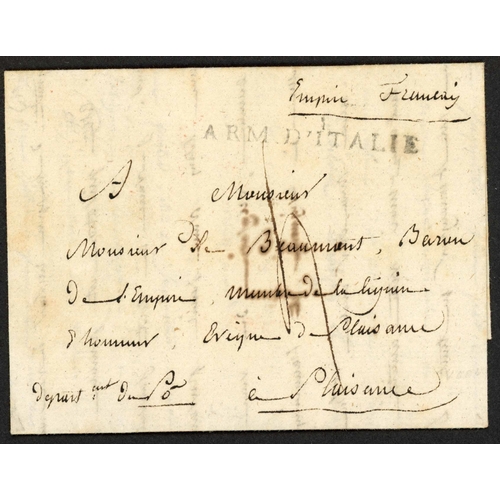 Empire Francais
ARM. D'ITALIE
A Monsieur
Monsieur De Beaumont, Baron
de l'Empire, membre de la légion
d'honneur, Evêque de Plaisance
départ.ent du Pô à Plaisance